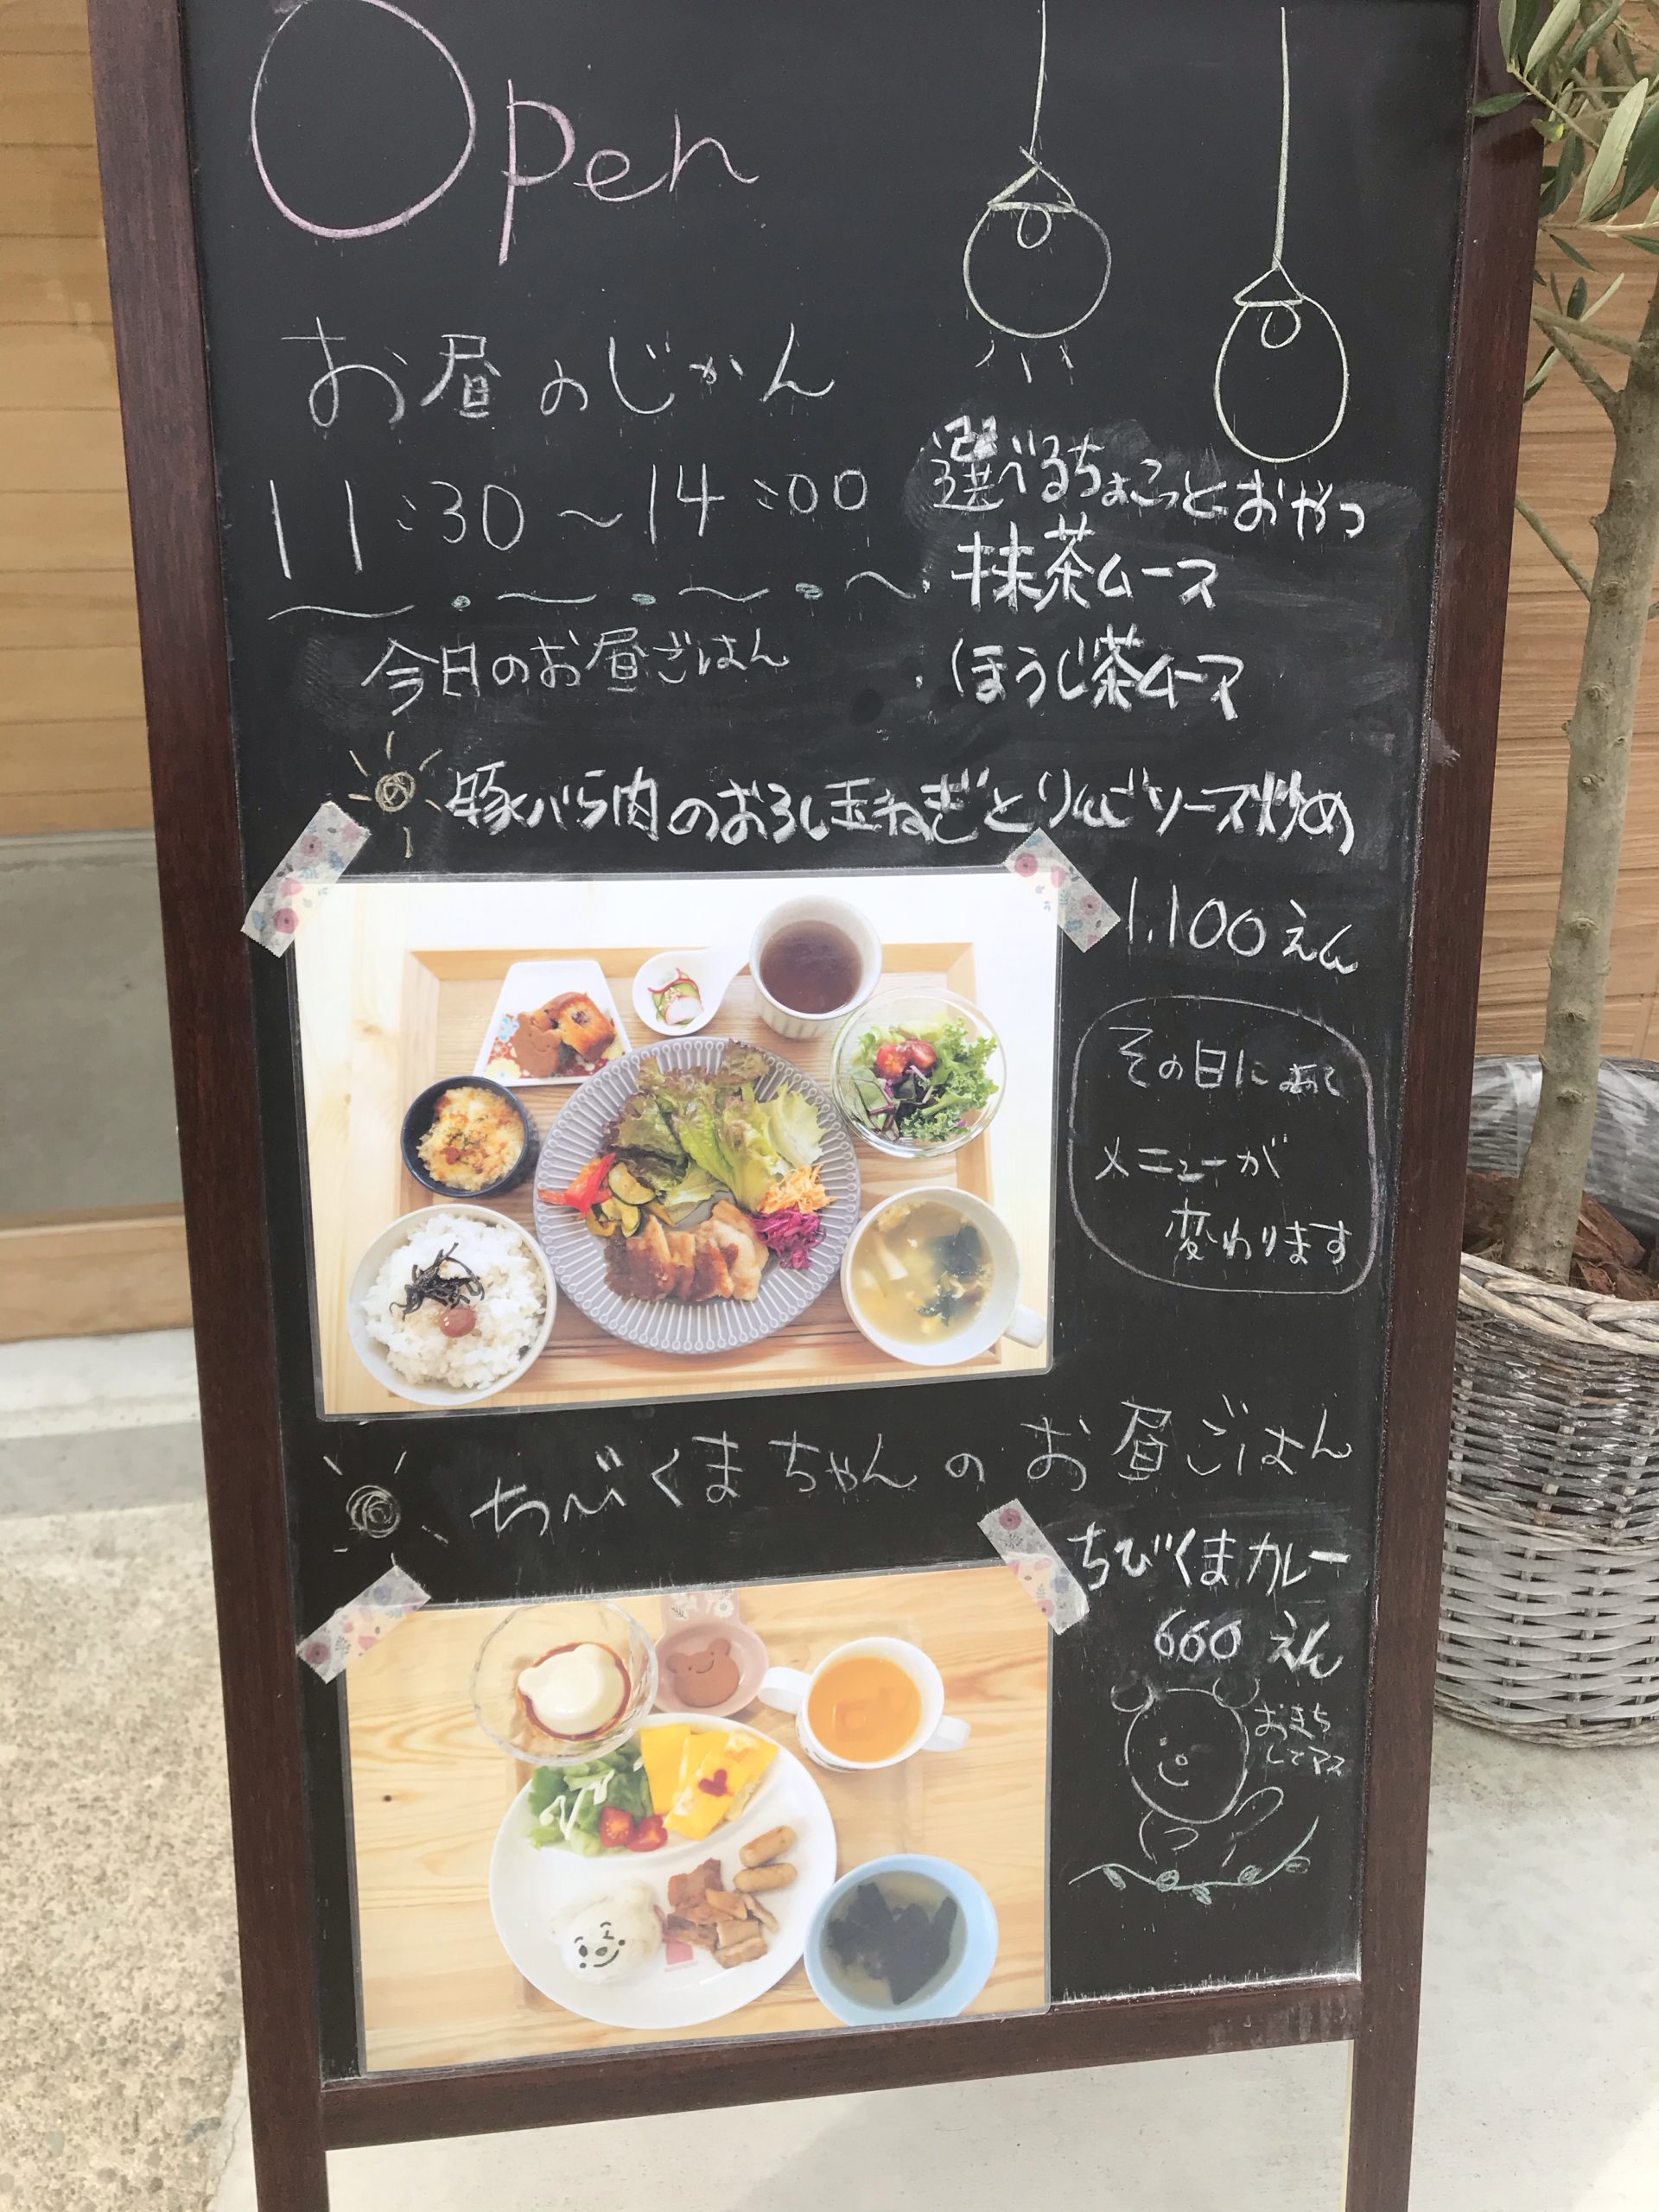 Open
お昼のじかん
11:30～14:00
選べるちょこっとおやつ
・抹茶ムース
・ほうじ茶ムース
今日のお昼ごはん
豚バら肉のおろし玉ねぎとりんごソース炒め
1.100えん
その日に
メニューが
変わります
ちびくまちゃんのお昼ごはん
ちびくまカレー
660えん
おまち
してマス